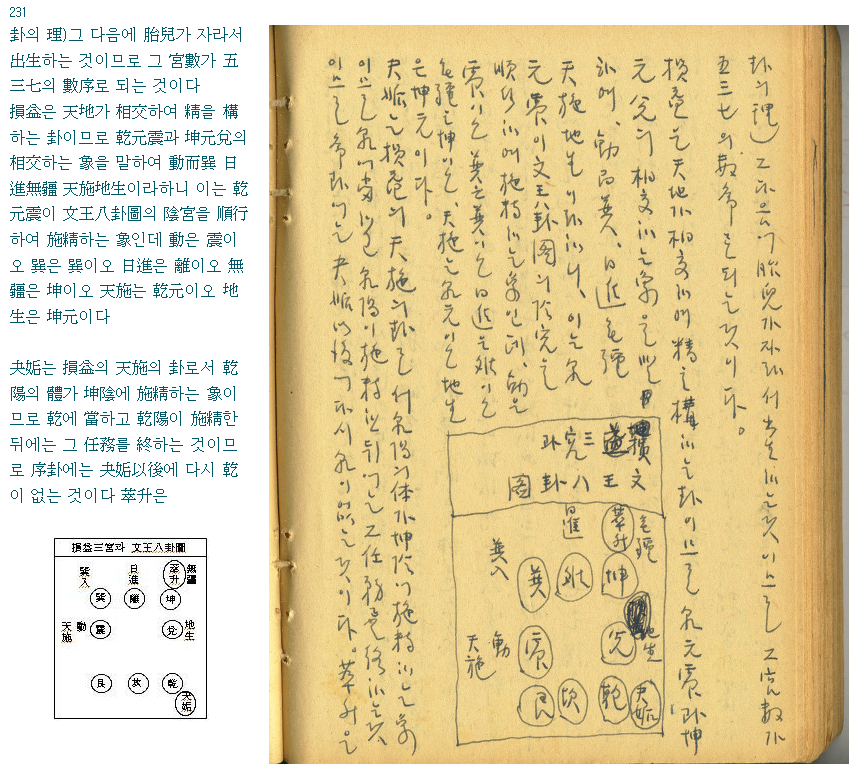 231
卦의 理)그 다음에 胎兒가 자라서
出生하는 것이므로 그 宮數가 五
三七의 數序로 되는 것이다
損益은 天地가 相交하여 精을 構
하는 卦이므로 乾元震과 坤元兌의
相交하는 象을 말하여 動而巽 日
進無疆 天施地生이라하니 이는 乾
元震이 文王八卦圖의 陰宮을 順行
하여 施精하는 象인데 動은 震이
오 巽은 巽이오 日進은 離이오 無
疆은 坤이오 天施는 乾元이오 地
生은 坤元이다
夬姤는 損益의 天施의 卦로서 乾
陽의 體가 坤陰에 施精하는 象이
므로 乾에 當하고 乾陽이 施精한
뒤에는 그 任務를 終하는 것이므
로 序卦에는 夬姤以後에 다시 乾
이 없는 것이다 萃升은
損益三宮과 文王八卦圖
巽入 日進 萃升 無疆
巽 離 坤
天施 動 震 兌 地生
艮 坎 乾
夬姤
卦의 理) 그 다음에 胎兒가 자라서 出生하는 것이므로 그 宮數가
五三七의 數序로 되는 것이다.
損益은 天地가 相交하여 精을 構하는 卦이므로 乾元震과 坤
元兌의 相交하는 象을 말
하여, 動而巽, 日進無疆
天施地生이라하니, 이는 乾
元震이 文王八卦图의 陰宮을
順行하여 施精하는 象인데, 動은
震이오 巽은 巽이오 日進은 離이오
無疆은 坤이오, 天施는 乾元이오 地生
은 坤元이다.
夬姤는 損益의 天施의 卦로서 乾陽의 体가 坤陰에 施精하는 象
이므로 乾에 當하고 乾陽이 施精한 뒤에는 그 任務를 終하는 것
이므로 序卦에는 夬姤以後에 다시 乾이 없는 것이다. 萃升은
損益三宮卦
文王八卦图
巽入 日進 萃升 無疆
巽 離 坤
天施 動 震 兌 地生
艮 坎 乾 夬姤